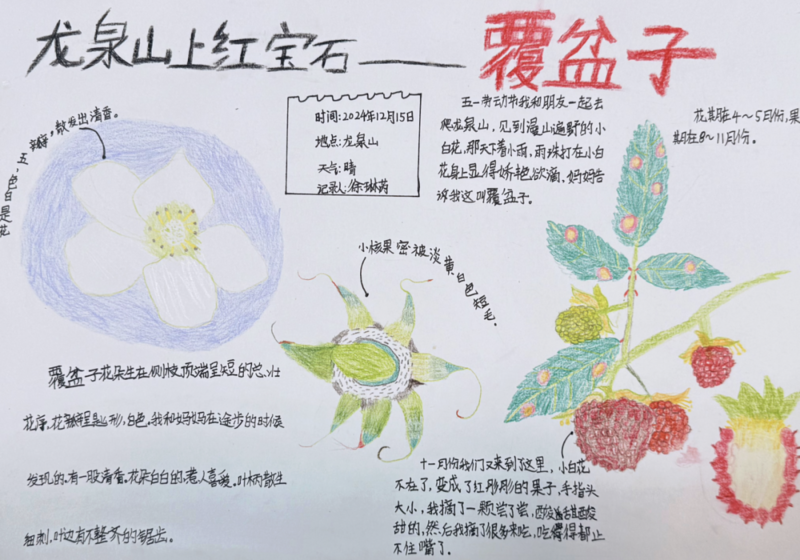 龙泉山上红宝石——覆盆子
时间:2024年12月15日
地点:龙泉山
天气:晴
记录人:徐琳芮
五一劳动节我和朋友一起去
爬龙泉山,见到漫山遍野的小
白花,那天下着小雨,雨珠打在小白
花身上显得娇艳欲滴,妈妈告
诉我这叫覆盆子。
花期在4～5月份,果
期在8～11月份。
花是白色,五瓣,散发出清香。
小核果密被淡黄白色短毛。
覆盆子花朵生在侧枝顶端呈短的总状
花序,花瓣呈匙形,白色,我和妈妈在徒步的时候
发现的,有一股清香。花朵白白的,惹人喜爱。叶柄散生
细刺,叶边有不整齐的锯齿。
十一月份我们又来到了这里,小白花
不在了,变成了红彤彤的果子,手指头
大小,我摘了一颗尝了尝,酸酸
甜甜的,然后我摘了很多来吃,吃得都止
不住嘴了。